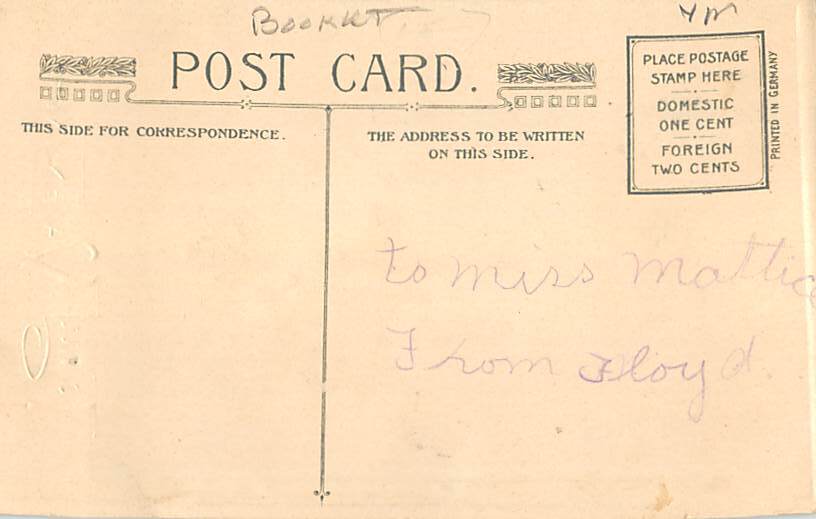 POST CARD.
THIS SIDE FOR CORRESPONDENCE.
THE ADDRESS TO BE WRITTEN
ON THIS SIDE.
PLACE POSTAGE
STAMP HERE
DOMESTIC
ONE CENT
FOREIGN
TWO CENTS
PRINTED IN GERMANY
to miss Mattie
From Floyd.